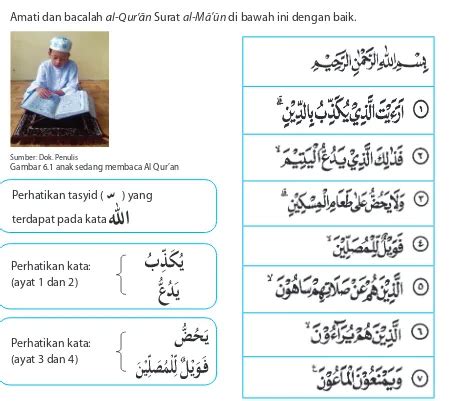 Amati dan bacalah al-Qur'ān Surat al-Mā'ūn di bawah ini dengan baik.
Sumber: Dok. Penulis
Gambar 6.1 anak sedang membaca Al Qur'an
Perhatikan tasyid ( ّ ) yang
terdapat pada kata الله
Perhatikan kata:
(ayat 1 dan 2)
يُكَذِّبُ
يَدُعُّ
Perhatikan kata:
(ayat 3 dan 4)
يَحُضُّ
فَوَيْلٌ لِّلْمُصَلِّيْنَ
بِسْمِ اللهِ الرَّحْمٰنِ الرَّحِيْمِ
١ اَرَءَيْتَ الَّذِيْ يُكَذِّبُ بِالدِّيْنِۗ
٢ فَذٰلِكَ الَّذِيْ يَدُعُّ الْيَتِيْمَۙ
٣ وَلَا يَحُضُّ عَلٰى طَعَامِ الْمِسْكِيْنِۗ
٤ فَوَيْلٌ لِّلْمُصَلِّيْنَۙ
٥ الَّذِيْنَ هُمْ عَنْ صَلَاتِهِمْ سَاهُوْنَۙ
٦ الَّذِيْنَ هُمْ يُرَاۤءُوْنَۙ
٧ وَيَمْنَعُوْنَ الْمَاعُوْنَ